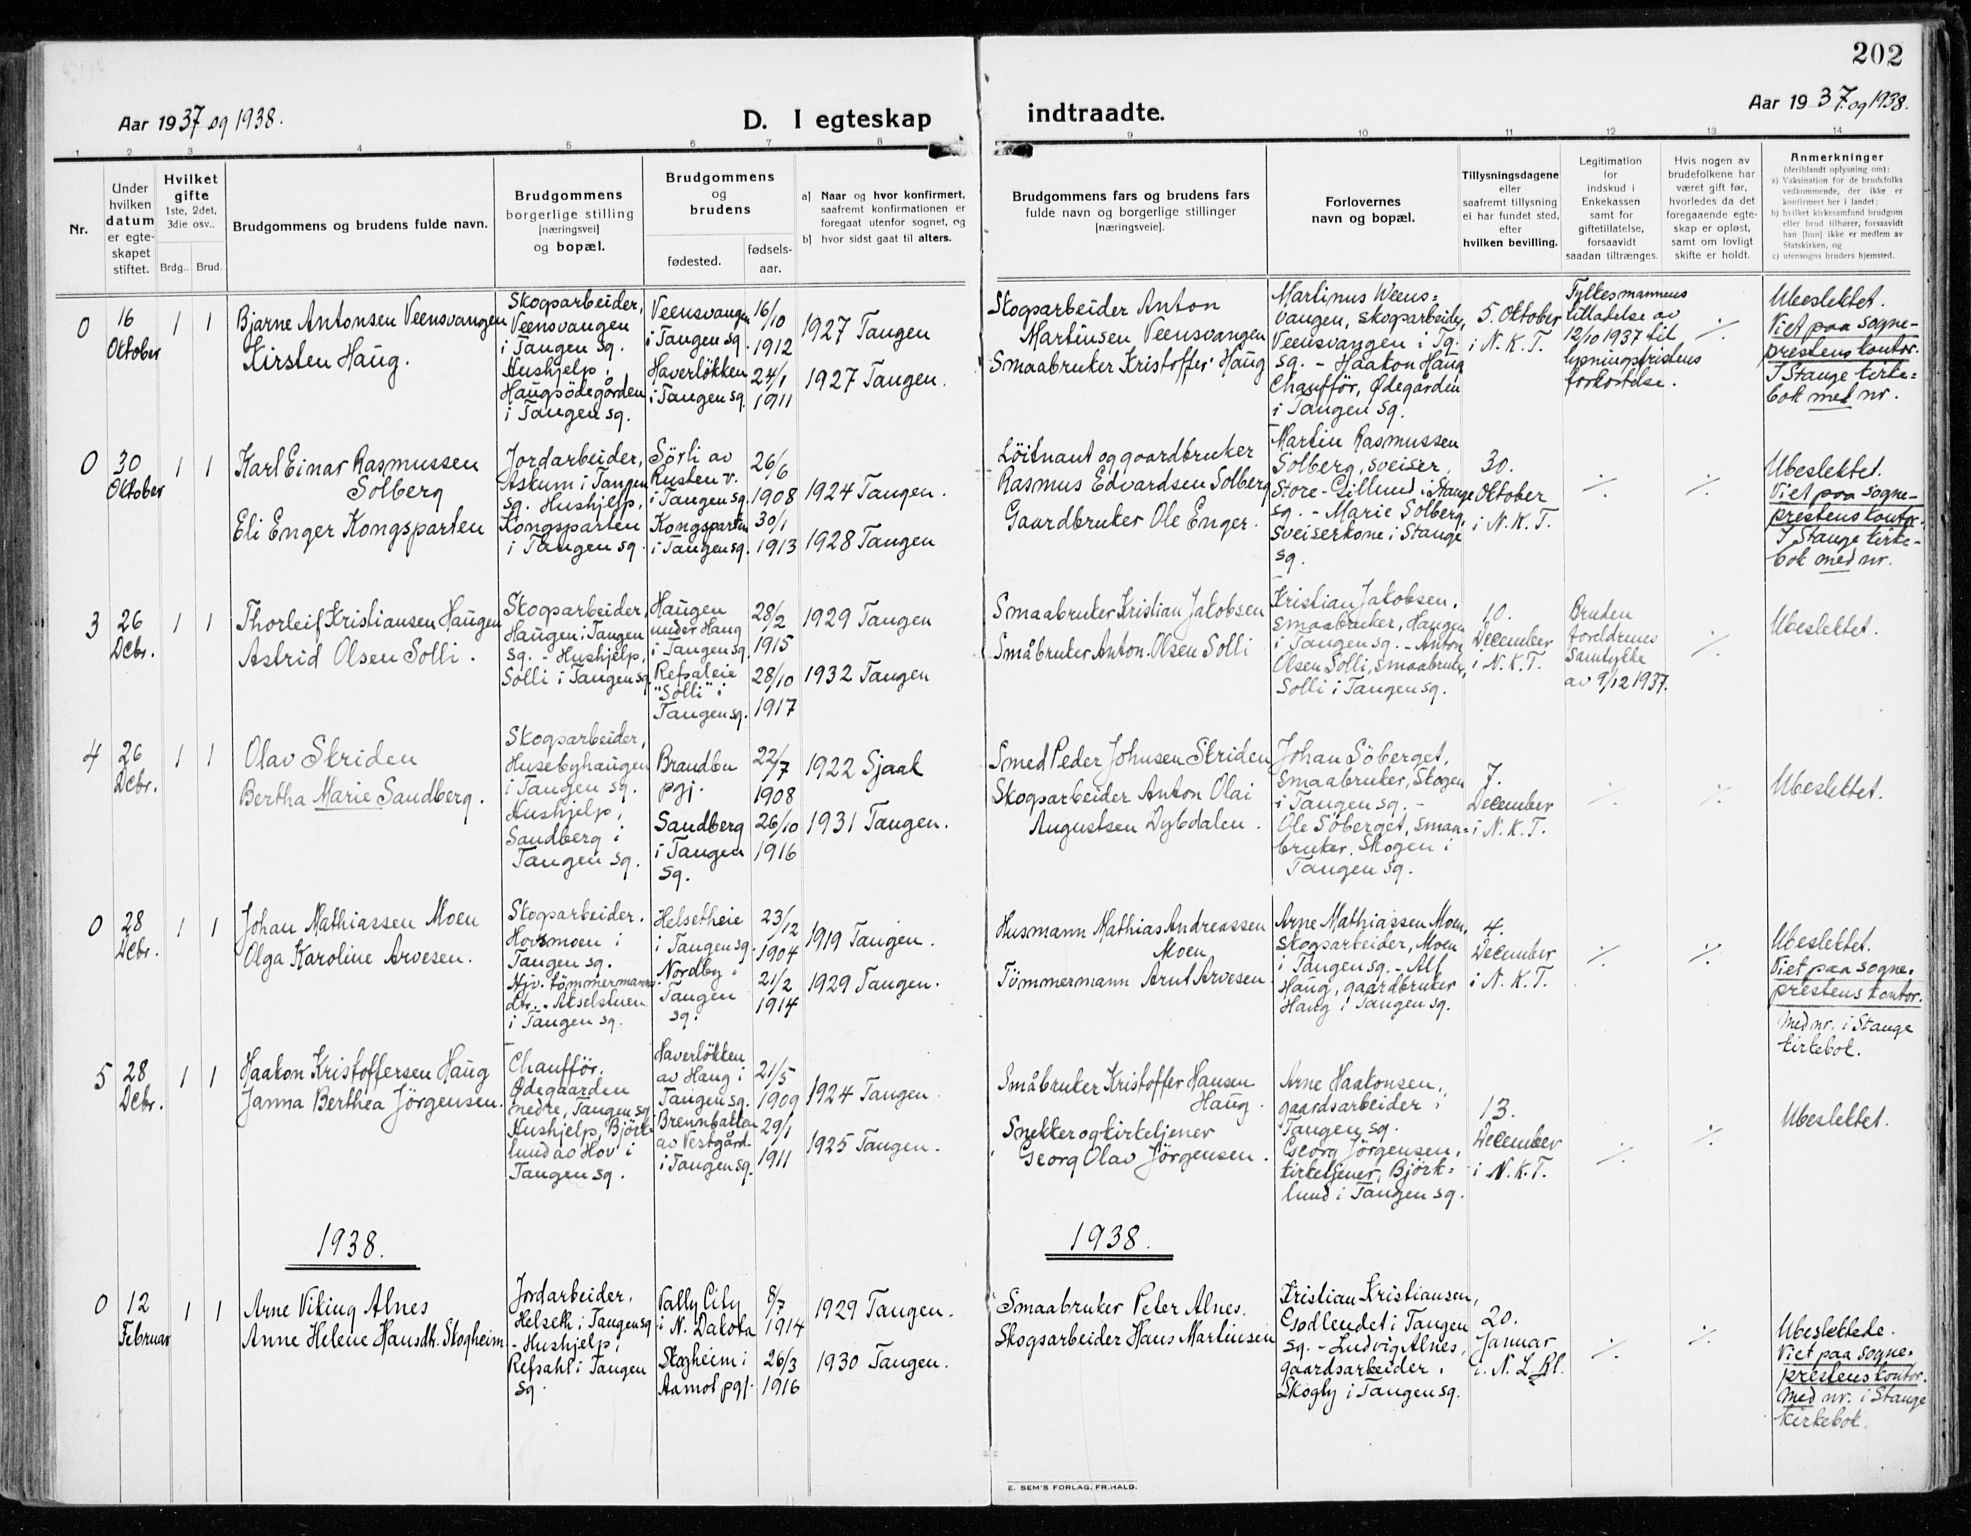 202
Aar 1937 og 1938.
D. I egteskap indtraadte.
Aar 1937 og 1938.
1 2 3 4 5 6 7 8 9 10 11 12 13 14
Nr.
Under
hvilken
datum
er egte-
skapet
stiftet.
Hvilket
gifte
1ste, 2det,
3die osv..
Brdg.. Brud.
Brudgommens og brudens fulde navn.
Brudgommens
borgerlige stilling
[næringsvei]
og bopæl.
Brudgommens
og
brudens
fødested.
fødsels-
aar.
a) Naar og hvor konfirmert,
saafremt konfirmationen er
foregaat utenfor sognet, og
b) hvor sidst gaat til alters.
Brudgommens fars og brudens fars
fulde navn og borgerlige stillinger
[næringsveie].
Forlovernes
navn og bopæl.
Tillysningsdagene
eller
saafremt tillysning
ei har fundet sted,
efter
hvilken bevilling.
Legitimation
for
indskud i
Enkekassen
samt for
giftetillatelse,
forsaavidt
saadan tiltrænges.
Hvis nogen av
brudefolkene har
været gift før,
hvorledes da det
foregaaende egte-
skap er opløst,
samt om lovligt
skifte er holdt.
Anmerkninger
(deriblandt oplysning om):
a) Vaksination for de brudefolks
vedkommende, der ikke er
konfirmert her i landet;
b) hvilket kirkesamfund brudgom
eller brud tilhører, forsaavidt
han [hun] ikke er medlem av
Statskirken, og
c) utensogns bruders hjemsted.
0
16
Oktober
1 1
Bjarne Antonsen Veensvangen
Kirsten Haug.
Skogsarbeider,
Veensvangen
i Tangen sg.
Hushjelp,
Haugsödegården
i Tangen sg.
Veensvangen
i Tangen sg.
Haverløkken
i Tangen sg.
16/10
1912
24/1
1911
1927 Tangen
1927 Tangen.
Skogsarbeider Anton
Martinsen Veensvangen
Smaabruker Kristoffer Haug
Martinus Weens=
vangen, skogsarbeider,
Veensvangen i Tg.
sg. - Haakon Haug
Chaufför, Ødegården
i Tangen sg.
5. Oktober
i N.K.T.
Fylkesmannens
tillatelse av
12/10 1937 til
lysningsfristens
forkortelse.
./.
Ubeslektet.
Viet paa sogne-
prestens kontor.
I Stange kirke=
bok med nr.
0
30
Oktober
1 1
Karl Einar Rasmussen
Solberg
Eli Enger Kongsparten
Jordarbeider,
Askum i Tangen
sg. Hushjelp,
Kongsparten
i Tangen sg.
Sörli av
Rusten v.
i Tangen sg.
Kongsparten
i Tangen sg.
26/6
1908
30/1
1913
1924 Tangen.
1928 Tangen
Löitnant og gaardbruker
Rasmus Edvardsen Solberg
Gaardbruker Ole Enger.
Martin Rasmussen
Solberg, sveiser,
Store-Gillund i Stange
sg. - Marie Solberg,
Sveiserkone i Stange
sg.
30.
Oktober
i N.K.T.
./.
./.
Ubeslektet.
Viet paa sogne-
prestens kontor.
I Stange kirke-
bok med nr.
3
26
Dcbr.
1 1
Thorleif Kristiansen Haugen
Astrid Olsen Solli.
Skogsarbeider,
Haugen i Tangen
sg. - Hushjelp,
Solli i Tangen sg.
Haugen
under Haug
i Tangen sg.
Refsaleie
"Solli" i
Tangen sg.
28/2
1915
28/10
1917
1929 Tangen
1932 Tangen
Smaabruker Kristian Jakobsen
Småbruker Anton Olsen Solli
Kristian Jakobsen,
smaabruker, Haugen
i Tangen sg. - Anton
Olsen Solli, smaabruker,
Solli i Tangen sg.
10.
December
i N.K.T.
Bruden
foreldrenes
samtykke
av 9/12 1937.
./.
Ubeslektet.
4
26
Dcbr.
1 1
Olav Skriden
Bertha Marie Sandberg.
Skogsarbeider,
Husebyhaugen
i Tangen sg.
Hushjelp,
Sandberg i
Tangen sg.
Brandbu
pgj.
Sandberg
i Tangen
sg.
22/7
1908
26/10
1916
1922 Sjaak
1931 Tangen.
Smed Peder Johnsen Skriden
Skogsarbeider Anton Olai
Augustsen Dybdalen.
Johan Söberget,
smaabruker, Skogen
i Tangen sg. -
Ole Söberget, smaa=
bruker, Skogen i
Tangen sg.
7.
December
i N.K.T.
./.
./.
Ubeslektet.
0
28
Dcbr.
1 1
Johan Mathiassen Moen
Olga Karoline Arvesen.
Skogsarbeider.
Hovsmoen i
Tangen sg.
Hjv. tömmermanns
dtr. - Akselstuen
i Tangen sg.
Helsetheie
i Tangen sg.
Nordby i
Tangen
sg.
23/12
1904
21/2
1914
1919 Tangen.
1929 Tangen.
Husmann Mathias Andreassen
Moen
Tömmermann Arnt Arvesen
Arne Mathiassen Moen,
skogsarbeider, Moen
i Tangen sg. - Alf
Haug, gaardbruker
Haug i Tangen sg.
4.
December
i N.K.T.
./.
./.
Ubeslektet.
Viet paa sogne-
prestens kontor.
Med nr. i Stange
kirkebok.
5
28
Dcbr.
1 1
Haakon Kristoffersen Haug
Janna Berthea Jörgensen.
Chaufför,
Ødegaarden
nedre, Tangen sg.
Hushjelp, Björk-
lund av Hov i
Tangen sg.
Haverløkken
av Haug i
Tangen sg.
Brennbakken
av Vestgård
i Tangen sg.
21/5
1909
29/1
1911
1924 Tangen.
1925 Tangen.
Småbruker Kristoffer Hansen
Haug.
Snekker og kirketjener
Georg Olav Jörgensen.
Arne Haakonsen,
gaardsarbeider i
Tangen sg.
Georg Jörgensen,
kirketjener, Björk=
lund i Tangen sg.
13.
December
i N.K.T.
./.
./.
Ubeslektet.
1938.
1938.
0
12
Februar
1 1
Arne Viking Alnes
Anne Helene Hansdtr. Skogheim
Jordarbeider.
Helseth i Tangen sg.
- Hushjelp,
Refsahl i Tangen
sg.
Vally City
i N. Dakota
Skogheim i
Aamot pgj.
8/7
1914
26/3
1916
1929 Tangen.
1930 Tangen.
Smaabruker Peter Alnes.
Skogsarbeider Hans Martinsen
Kristian Kristiansen,
Godlendet i Tangen
sg. - Ludvig Alnes,
gaardsarbeider,
Skogly i Tangen sg.
20.
Januar
i. N. L. Bl.
./.
./.
Ubeslektede.
Viet paa sogne-
prestens kontor.
Med nr. i Stange
kirkebok.
E. SEM'S FORLAG, FR.HALD.